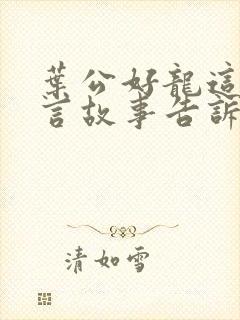 葉公好龍這
言故事告訴
清如雪